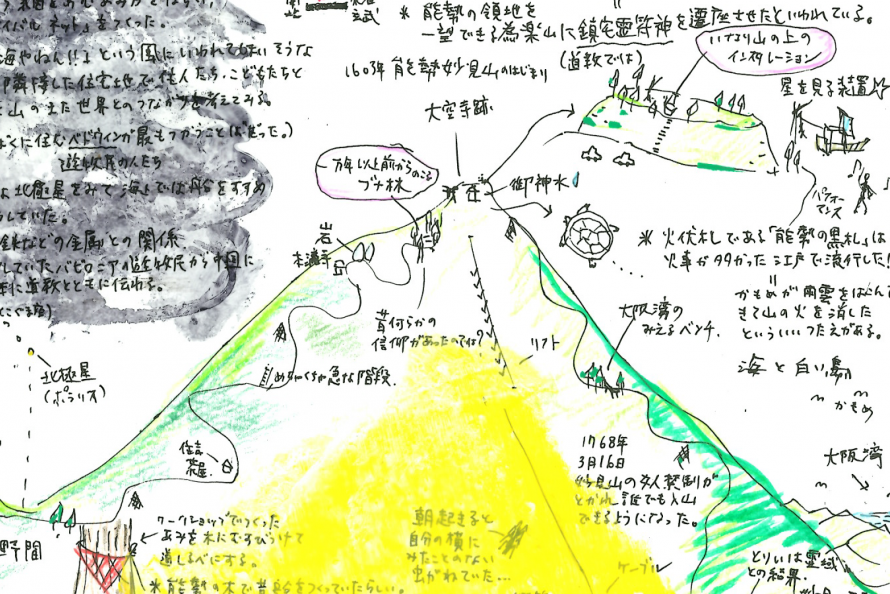 イバル ネット」をつくった。
海やねん!!」という風にいわれてはいそうな
隣接した住宅地で住人たち、こどもたちと
山のまた世界とのつながりを考えてみる。
くに住むベドウィンが最もつかうことばだった。)
遊牧民の人たち
北極星をみて海上では舟をすすめ
していた。
鉄などの金属との関係
していたバビロニアの遊牧民から中国に
に道教とともに伝わる。
こぐま座)
北極星
(ポラリス)
* 能勢の領地を
一望できる為楽山に鎮宅霊符神を遷座させたといわれている。
(道教では)
1603年 能勢妙見山のはじまり
大空寺跡
いなり山の上の
インスタレーション
星を見る装置
パフォーマンス
万年以上前からのこる
ブナ林
御神水
岩
本瀧寺
昔何らかの
信仰があったのでは?
リフト
めちゃくちゃ急な階段.
* 火伏札である「能勢の黒札」は
火事が多かった江戸で流行した!
かもめが雨雲をはこんで
きて山の火を消した
といういいつたえがある。
海と白い鳥
かもめ
大阪湾
大阪湾の
みえるベンチ.
住吉
茶屋.
野間
ワークショップでつくった
あみを木にむすびつけて
道しるべにする。
* 能勢の木で昔船をつくっていたらしい。
朝起きると
自分の横に
みたことのない
虫がねていた...
1768年
3月16日
妙見山の女人禁制が
とかれ誰でも入山
できるようになった。
ケーブル
とりいは霊域
との結界.